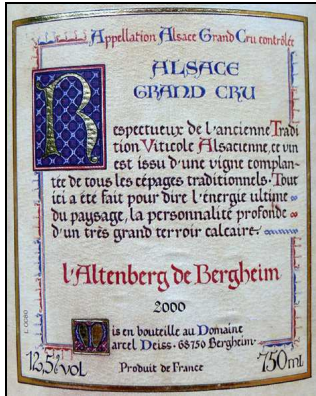 Appellation Alsace Grand Cru contrôlée
ALSACE
GRAND CRU
Respectueux de l'ancienne Tradi
tion Viticole Alsacienne, ce vin
est issu d'une vigne complan-
tée de tous les cépages traditionnels. Tout
ici a été fait pour dire l'énergie ultime
du paysage, la personnalité profonde
d'un très grand terroir calcaire.
l'Altenberg de Bergheim
2000
Mis en bouteille au Domaine
Marcel Deiss - 68750 Bergheim
12,5%vol Produit de France 750ml